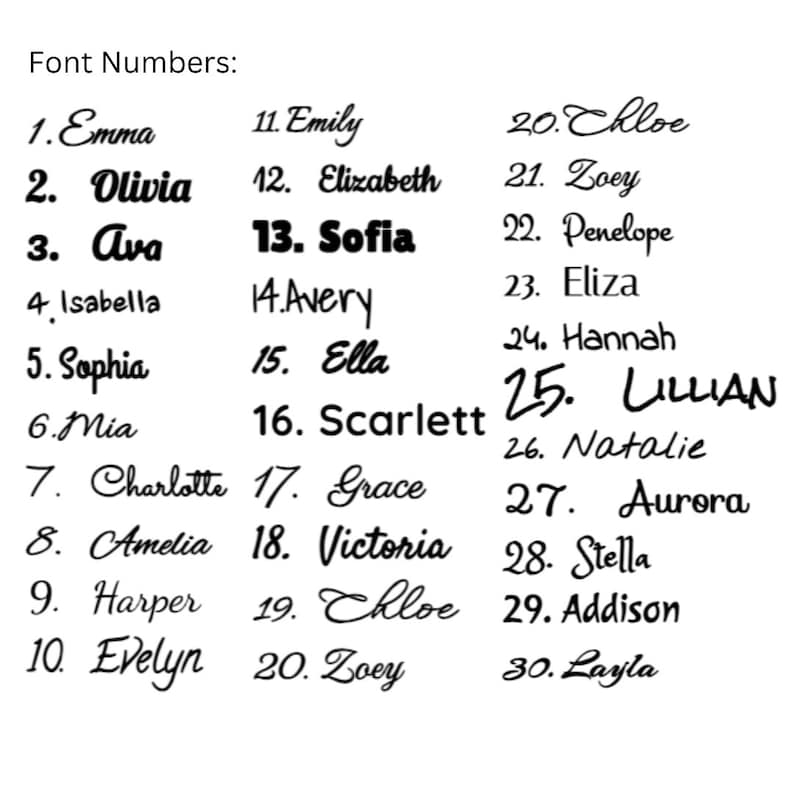 Font Numbers:
1. Emma
2. Olivia
3. Ava
4. Isabella
5. Sophia
6. Mia
7. Charlotte
8. Amelia
9. Harper
10. Evelyn
11. Emily
12. Elizabeth
13. Sofia
14. Avery
15. Ella
16. Scarlett
17. Grace
18. Victoria
19. Chloe
20. Zoey
20. Chloe
21. Zoey
22. Penelope
23. Eliza
24. Hannah
25. LILLIAN
26. Natalie
27. Aurora
28. Stella
29. Addison
30. Layla